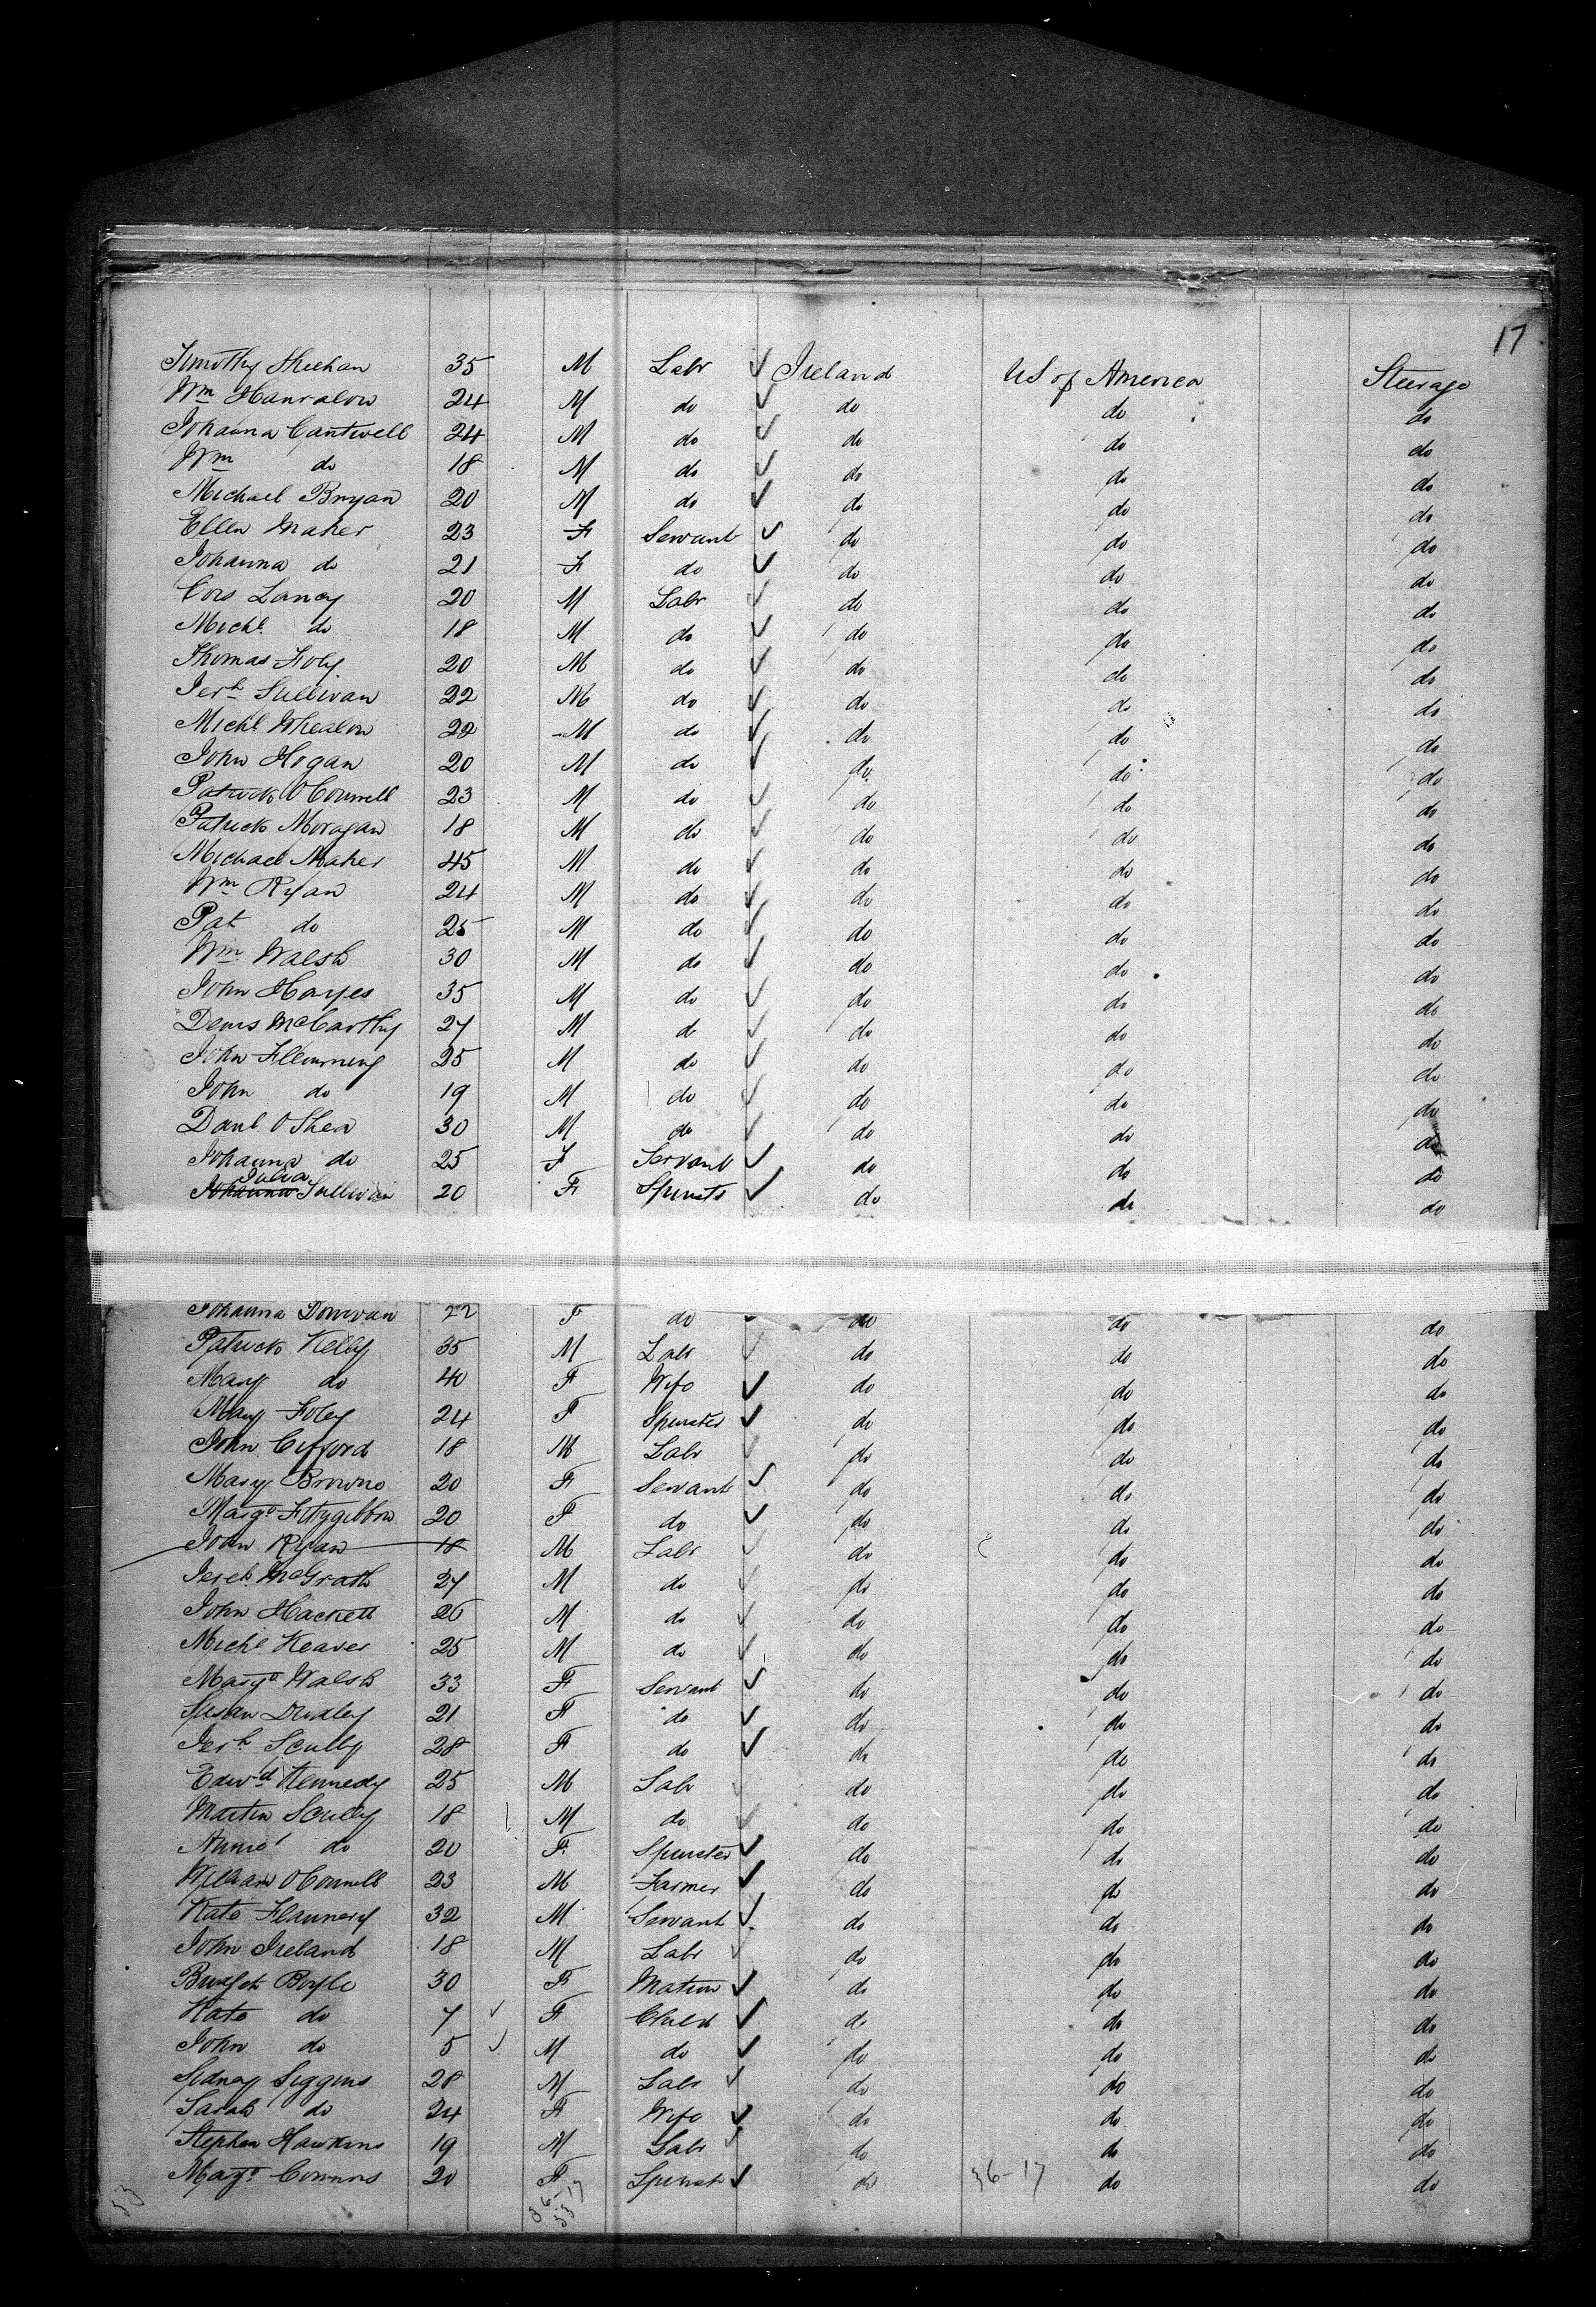 17
Timothy Sheehan 35 M Labr Ireland US of America Steerage
Wm Hanralon 24 M do do do do
Johanna Cantwell 24 M do do do do
Wm do 18 M do do do do
Michael Bryan 20 M do do do do
Ellen Maher 23 F Servant do do do
Johanna do 21 F do do do do
Cors Lancy 20 M Labr do do do
Michl do 18 M do do do do
Thomas Foly 20 M do do do do
Jerh Sullivan 22 M do do do do
Michl Whealon 22 M do do do do
John Hogan 20 M do do do do
Patrick O'Connell 23 M do do do do
Patrick Moragan 18 M do do do do
Michael Maher 45 M do do do do
Wm Ryan 24 M do do do do
Pat do 25 M do do do do
Wm Walsh 30 M do do do do
John Hayes 35 M do do do do
Denis McCarthy 27 M do do do do
John Flemming 25 M do do do do
John do 19 M do do do do
Danl O'Shea 30 M do do do do
Johanna do 25 F Servant do do do
Julia
Johanna Sullivan 20 F Spinstr do do do
Johanna Donovan 22 F do do do do
Patrick Kelly 35 M Labr do do do
Mary do 40 F Wife do do do
Mary Foley 24 F Spinster do do do
John Gifford 18 M Labr do do do
Mary Browne 20 F Servant do do do
Margt Fitzgibbon 20 F do do do do
John Ryan 18 M Labr do do do
Jereh McGrath 27 M do do do do
John Hackett 26 M do do do do
Michl Keaver 25 M do do do do
Margt Walsh 33 F Servant do do do
Susan 21 F do do do do
Jerh Scully 28 F do do do do
Edwd Kennedy 25 M Labr do do do
Martin Scully 18 M do do do do
Anne do 20 F Spinster do do do
William O'Connell 23 M Farmer do do do
Kate Flannery 32 M Servant do do do
John Ireland 18 M Labr do do do
Bridget Boyle 30 F Matron do do do
Kate do 7 F Child do do do
John do 5 M do do do do
Sidney Siggins 28 M Labr do do do
Sarah do 24 F Wife do do do
Stephen Hawkins 19 M Labr do do do
Margt Connors 20 F Spinstr do do do
36-17
36-17
53
53